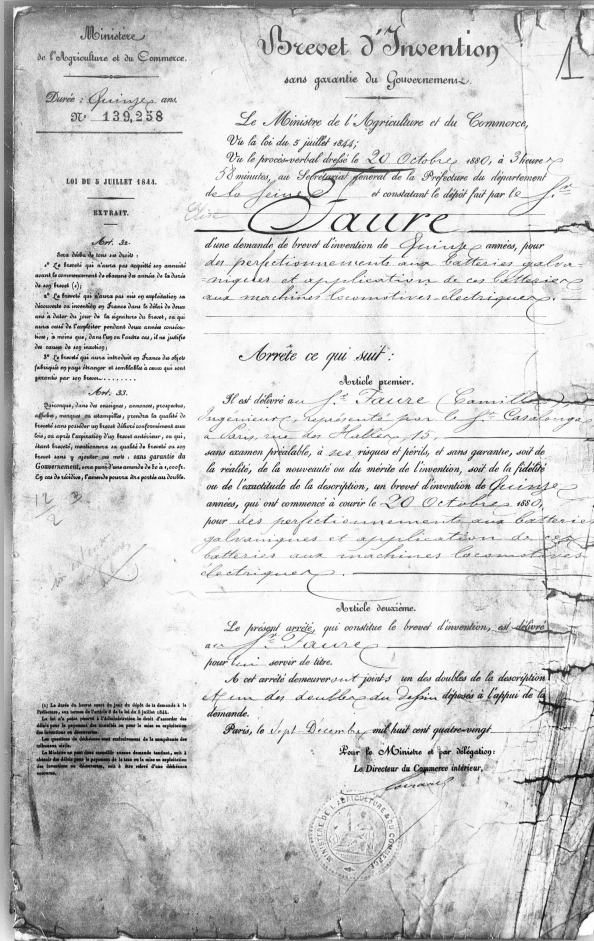 Ministère
de l'Agriculture et du Commerce.
Durée : Quinze ans.
N° 139,258
LOI DU 5 JUILLET 1844.
EXTRAIT.
Art. 32.
Sera déchu de tous ses droits :
1° Le breveté qui n'aura pas acquitté son annuité
avant le commencement de chacune des années de la durée
de son brevet (1);
2° Le breveté qui n'aura pas mis en exploitation sa
découverte ou invention en France dans le délai de deux
ans à dater du jour de la signature du brevet, ou qui
aura cessé de l'exploiter pendant deux années consécu-
tives, à moins que, dans l'un ou l'autre cas, il ne justifie
des causes de son inaction;
3° Le breveté qui aura introduit en France des objets
fabriqués en pays étranger et semblables à ceux qui sont
garantis par son brevet.........
Art. 33.
Quiconque, dans des enseignes, annonces, prospectus,
affiches, marques ou estampilles, prendra la qualité de
breveté sans posséder un brevet délivré conformément aux
lois, ou après l'expiration d'un brevet antérieur, ou qui,
étant breveté, mentionnera sa qualité de breveté ou son
brevet sans y ajouter ces mots : sans garantie du
Gouvernement, sera puni d'une amende de 50 à 1,000 fr.
En cas de récidive, l'amende pourra être portée au double.
12 3
2
(1) La durée du brevet court du jour du dépôt de la demande à la
Préfecture, aux termes de l'article 8 de la loi du 5 juillet 1844.
La loi n'a point réservé à l'Administration le droit d'accorder des
délais pour le payement des annuités ou pour la mise en exploitation
des inventions ou découvertes.
Les questions de déchéance sont exclusivement de la compétence des
tribunaux civils.
Le Ministre ne peut donc accueillir aucune demande tendant, soit à
obtenir des délais pour le payement de la taxe ou la mise en exploitation
des inventions ou découvertes, soit à être relevé d'une déchéance
encourue.
Brevet d'Invention
sans garantie du Gouvernement.
1
Le Ministre de l'Agriculture et du Commerce,
Vu la loi du 5 juillet 1844;
Vu le procès-verbal dressé le 20 Octobre 1880, à 3 heures
58 minutes, au Secrétariat général de la Préfecture du département
de la Seine et constatant le dépôt fait par le Sr
Faure
d'une demande de brevet d'invention de Quinze années, pour
des perfectionnements aux batteries galva-
niques et application de ces batteries
aux machines locomotives électriques.
Arrête ce qui suit :
Article premier.
Il est délivré au Sr Faure (Camille
Ingénieur, représenté par le Sr Casalonga
à Paris, rue des Halles, 15,
sans examen préalable, à ses risques et périls, et sans garantie, soit de
la réalité, de la nouveauté ou du mérite de l'invention, soit de la fidélité
ou de l'exactitude de la description, un brevet d'invention de Quinze
années, qui ont commencé à courir le 20 Octobre 1880,
pour des perfectionnements aux batteries
galvaniques et application de ces
batteries aux machines locomotives
électriques.
Article deuxième.
Le présent arrêté, qui constitue le brevet d'invention, est délivré
au Sr Faure
pour lui servir de titre.
A cet arrêté demeureront joints un des doubles de la description
et un des doubles du dessin déposés à l'appui de la
demande.
Paris, le sept Décembre mil huit cent quatre-vingt.
Pour le Ministre et par délégation:
Le Directeur du Commerce intérieur,
MINISTÈRE DE L'AGRICULTURE & DU COMMERCE